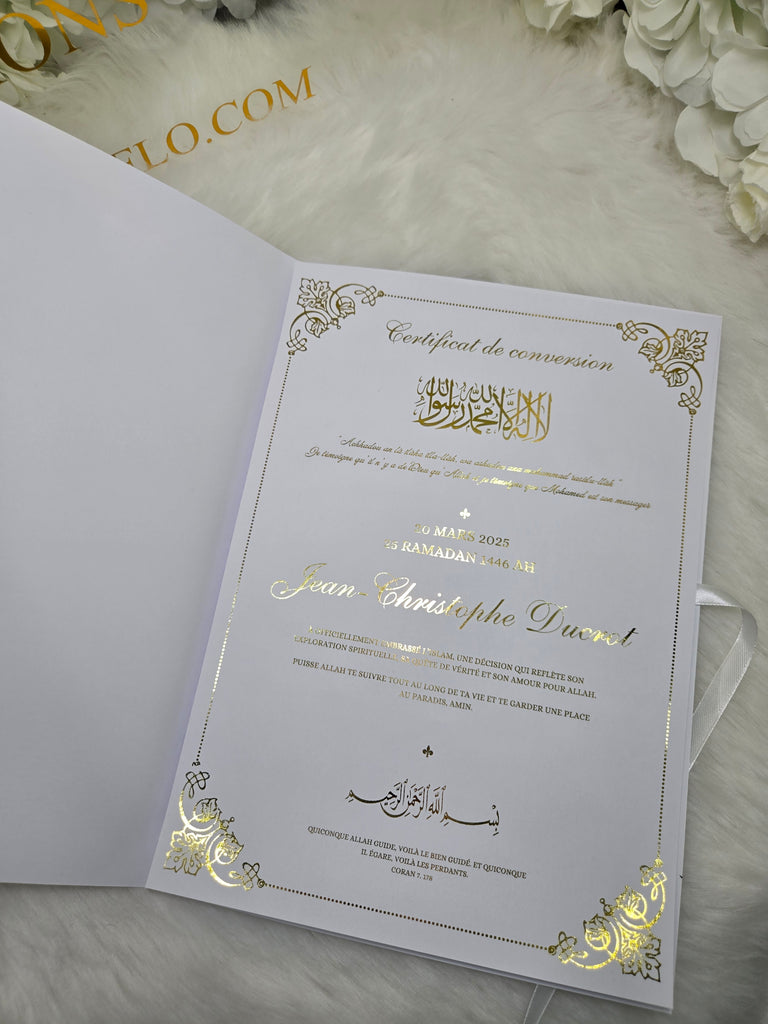 ONS
ELO.COM
Certificat de conversion
لا إله إلا الله محمد رسول الله
"Achhadou an lâ ilâha illa-llâh, wa achadou ana mohammed rasûlu-llâh"
Je témoigne qu'il n'y a de Dieu qu'Allah et je témoigne que Mohamed est son messager
MARS 2025
25 RAMADAN 1446 AH
Jean-Christophe Ducrot
A OFFICIELLEMENT EMBRASSÉ L'ISLAM, UNE DÉCISION QUI REFLÈTE SON
EXPLORATION SPIRITUELLE, SA QUÊTE DE VÉRITÉ ET SON AMOUR POUR ALLAH.
PUISSE ALLAH TE SUIVRE TOUT AU LONG DE TA VIE ET TE GARDER UNE PLACE
AU PARADIS, AMIN.
بسم الله الرحمن الرحيم
QUICONQUE ALLAH GUIDE, VOILÀ LE BIEN GUIDÉ. ET QUICONQUE
IL ÉGARE, VOILÀ LES PERDANTS.
CORAN 7. 178